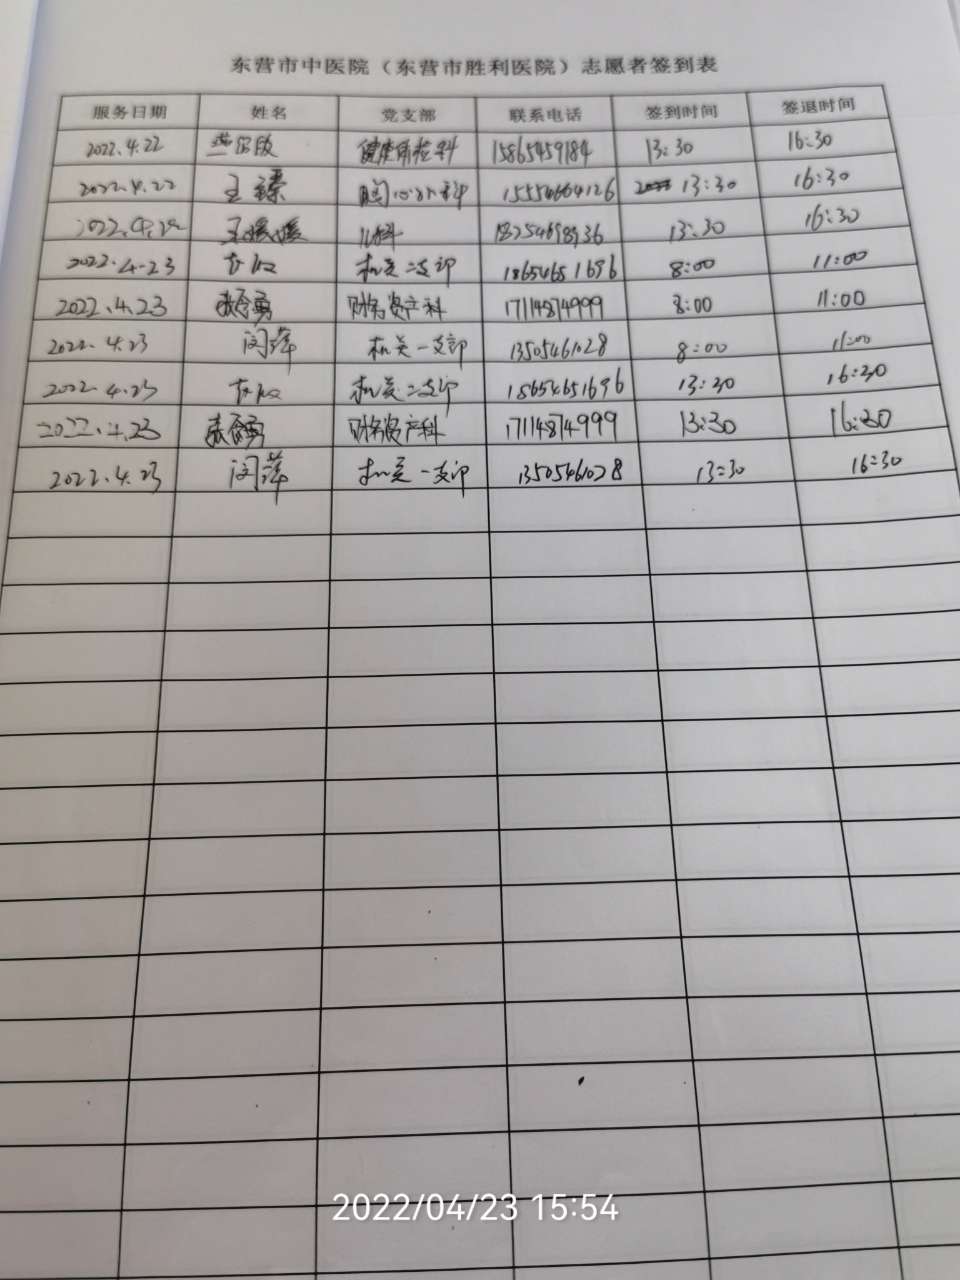 东营市中医院（东营市胜利医院）志愿者签到表
服务日期 姓名 党支部 联系电话 签到时间 签退时间
2022.4.22 健康体检科 15865459184 13:30 16:30
2022.4.22 王臻 胸心外科 15554664126 13:30 16:30
2022.4.22 王媛媛 儿科 13:30 16:30
2022.4.23 机关二支部 18654651696 8:00 11:00
2022.4.23 财务资产科 17114874999 8:00 11:00
2022.4.23 闵萍 机关一支部 13505461028 8:00 11:00
2022.4.23 机关二支部 18654651696 13:30 16:30
2022.4.23 财务资产科 17114874999 13:30 16:30
2022.4.23 闵萍 机关一支部 13505461028 13:30 16:30
2022/04/23 15:54